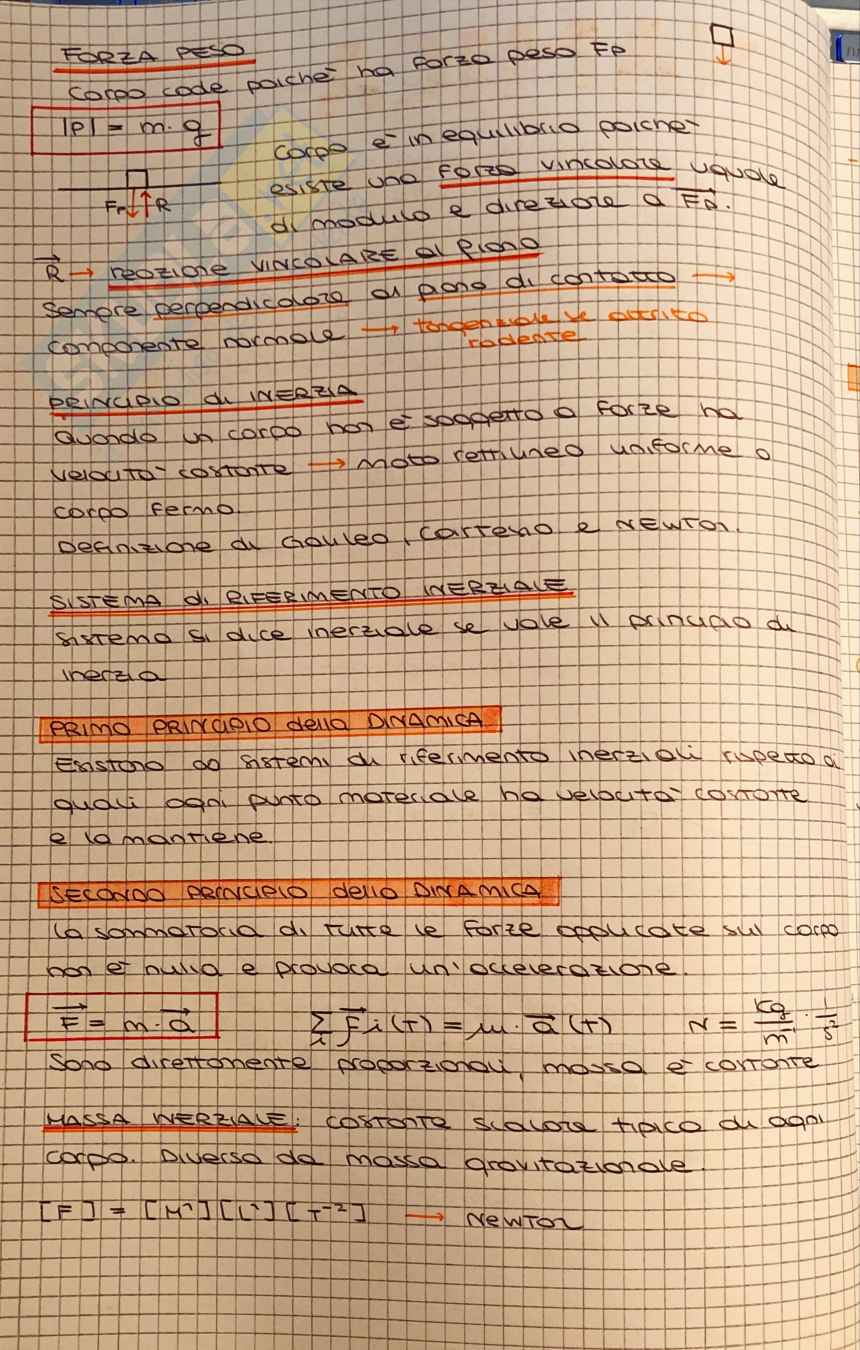 FORZA PESO
Corpo cade poichè ha forza peso Fp
|P| = m · g
Corpo è in equilibrio poichè
esiste una forza vincolare uguale
di modulo e direzione a Fp.
Fp R
R → reazione VINCOLARE al piano
Sempre perpendicolare al piano di contatto →
componente normale → tangenziale se attrito
radente
PRINCIPIO di INERZIA
Quando un corpo non è soggetto a forze ha
velocità costante → moto rettilineo uniforme o
corpo fermo.
Definizione di Galileo, Cartesio e NEWTON.
SISTEMA di RIFERIMENTO INERZIALE
Sistema si dice inerziale se vale il principio di
inerzia
PRIMO PRINCIPIO della DINAMICA
Esistono dei sistemi di riferimento inerziali rispetto ai
quali ogni punto materiale ha velocità costante
e la mantiene.
SECONDO PRINCIPIO della DINAMICA
La sommatoria di tutte le forze applicate sul corpo
non è nulla e provoca un'accelerazione.
F = m · a    Σi Fi(t) = m · a(t)    N = kg/m⁻¹ · 1/s²
Sono direttamente proporzionali, massa è costante
MASSA INERZIALE: costante scalare tipica di ogni
corpo. Diversa da massa gravitazionale.
[F] = [M¹][L¹][T⁻²] → NEWTON